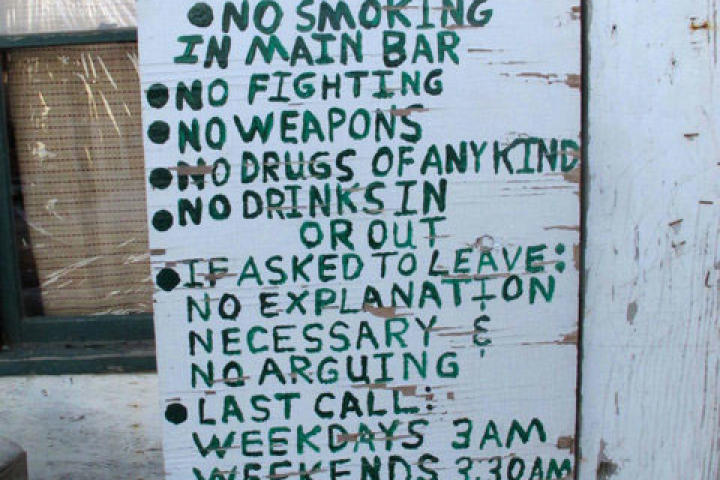 ● NO SMOKING
IN MAIN BAR
● NO FIGHTING
● NO WEAPONS
● NO DRUGS OF ANY KIND
● NO DRINKS IN
OR OUT
● IF ASKED TO LEAVE:
NO EXPLANATION
NECESSARY &
NO ARGUING
● LAST CALL:
WEEKDAYS 3AM
WEEKENDS 3.30AM